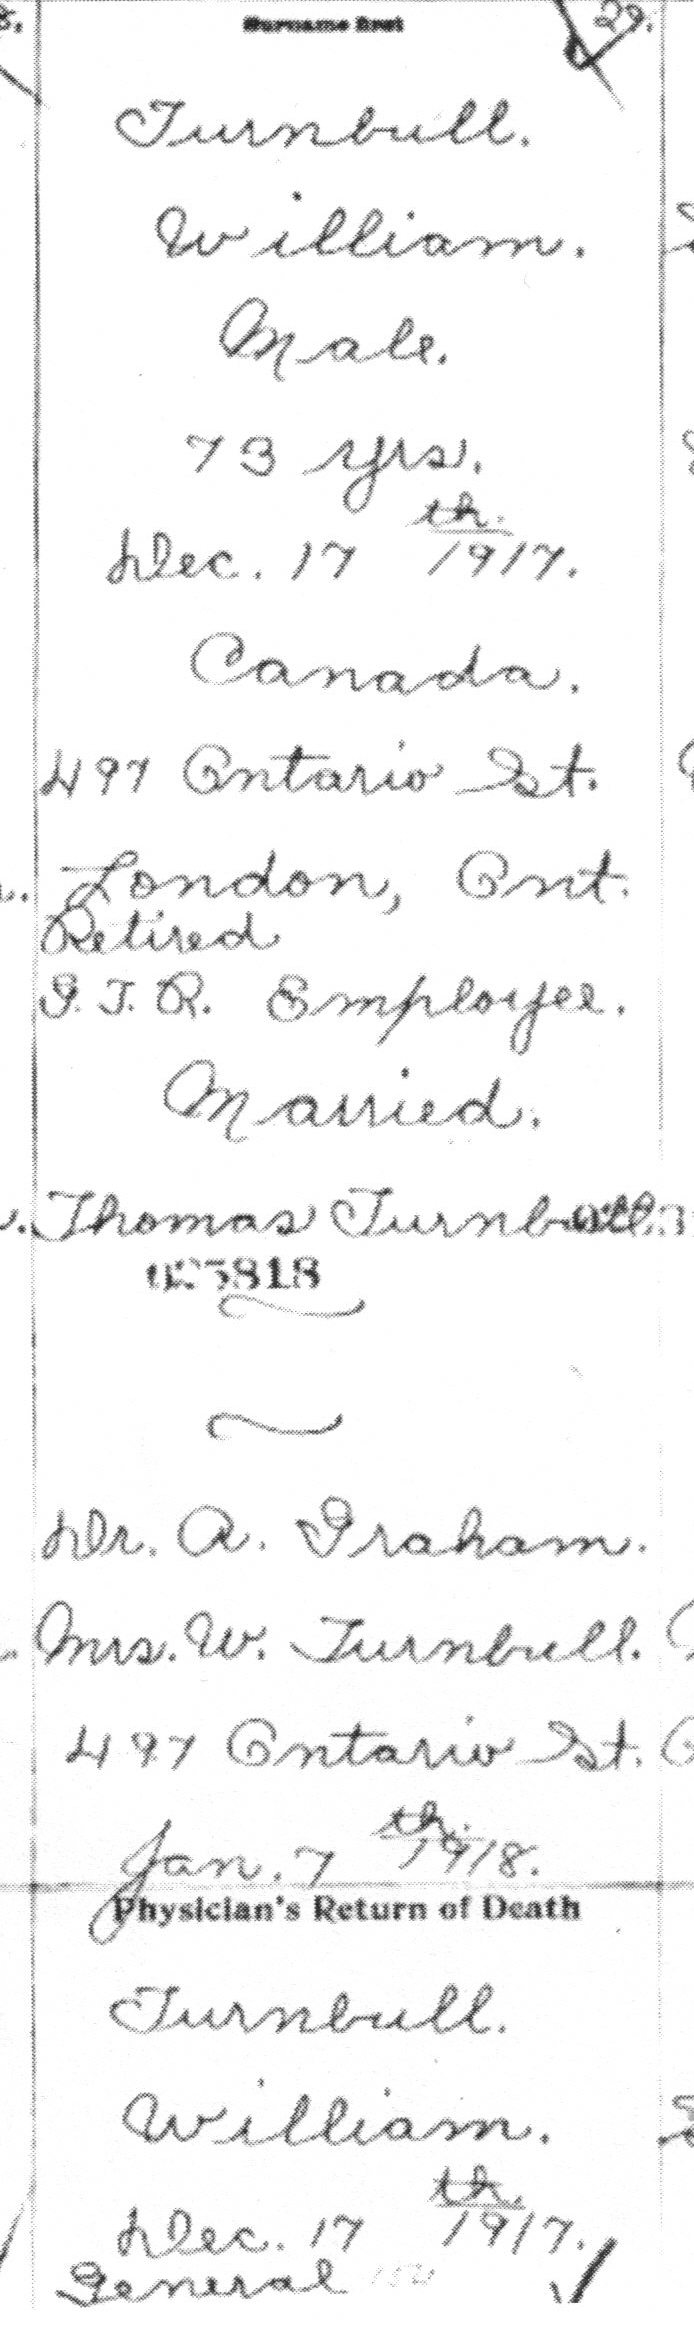 Surname first
29.
Turnbull.
William.
Male.
73 yrs.
Dec. 17th. 1917.
Canada.
497 Ontario St.
London, Ont.
Retired
G.T.R. Employee.
Married.
Thomas Turnbull.
025818
Dr. A. Graham.
Mrs. W. Turnbull.
497 Ontario St.
Jan. 7th. 1918.
Physician's Return of Death
Turnbull.
William.
Dec. 17th. 1917.
General